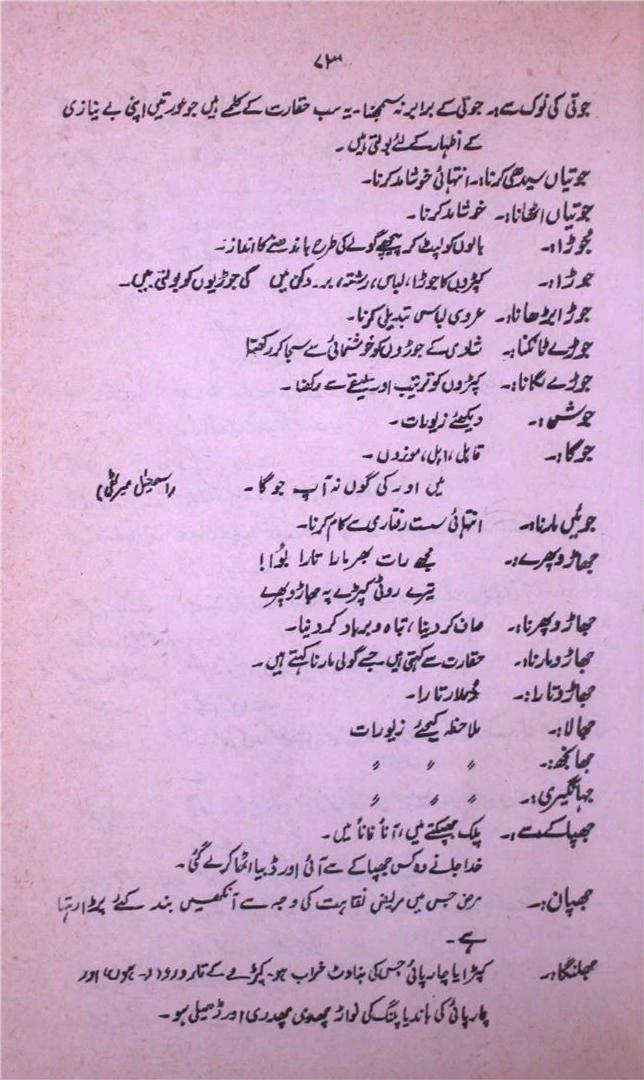 ۷۳
جوتی کی نوک سے:۔ جوتی کے برابر نہ سمجھنا۔ یہ سب حقارت کے کلمے ہیں جو عورتیں اپنی بے نیازی
کے اظہار کے لئے بولتی ہیں۔
جوتیاں سیدھی کرنا:۔ انتہائی خوشامد کرنا۔
جوتیاں اٹھانا:۔ خوشامد کرنا۔
جُوڑا:۔ بالوں کو لپٹ کر پیچھے گولے کی طرح باندھنے کا انداز۔
جوڑا:۔ کپڑوں کا جوڑا، لباس، رشتہ، بر۔ دکن میں گی جوڑیوں کو بولتی ہیں۔
جوڑا بڑھانا:۔ عروسی لباس تبدیل کرنا۔
جوڑے ٹانکنا:۔ شادی کے جوڑوں کو خوشنمائی سے سجا کر رکھنا
جوڑے لگانا:۔ کپڑوں کو ترتیب اور سلیقے سے رکھنا۔
جوشن:۔ دیکھئے زیورات۔
جوگا:۔ قابل، اہل، موزوں۔
میں اور کی گوں نہ آپ جوگا۔ (اسمعیل میرٹھی)
جوئیں مارنا:۔ انتہائی سست رفتاری سے کام کرنا۔
جھاڑو پھرے:۔ مجھے رات بھر مارا تارا بُوا!
تیرے روٹی کپڑے پہ جھاڑو پھرے
جھاڑو پھرنا:۔ صاف کر دینا، تباہ و برباد کر دینا۔
جھاڑو مارنا:۔ حقارت سے کہتی ہیں۔ جسے گولی مارنا کہتے ہیں۔
جھاڑو تارا:۔ دُمدار تارا۔
جھالا:۔ ملاحظہ کیجئے زیورات
جھانجھ:۔ " " "
جہانگیری:۔ " " "
جھپاکے سے:۔ پلک جھپکتے میں، آناً فاناً میں۔
خدا جانے وہ کس جھپاکے سے آئی اور ڈبیا اٹھا کر لے گئی۔
جھپان:۔ مرض جس میں مریض نقاہت کی وجہ سے آنکھیں بند کئے پڑا رہتا
ہے۔
جھلنگا:۔ کپڑا یا چارپائی جس کی بناوٹ خراب ہو۔ کپڑے کے تار دور دور ہوں، اور
چارپائی کی باند یا پلنگ کی نواڑ چھدری اور ڈھیلی ہو۔